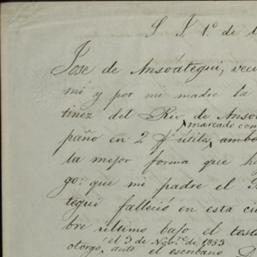 S. J. 1.º de 1
José de Ansoátegui, veci
mí y por mi madre la
tinez del Rio de Ansoa
marcado con
paño en 2 f.s útiles, ambo
la mejor forma que ha
go: que mi padre el
tegui falleció en esta ciu
bre último bajo el testa
el 3 de Nov.e de 1853
otorgó, ante el escribano